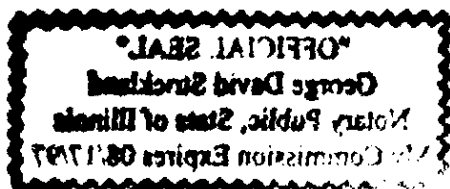 "OFFICIAL SEAL"
George David Strickland
Notary Public, State of Illinois
My Commission Expires 08/17/97